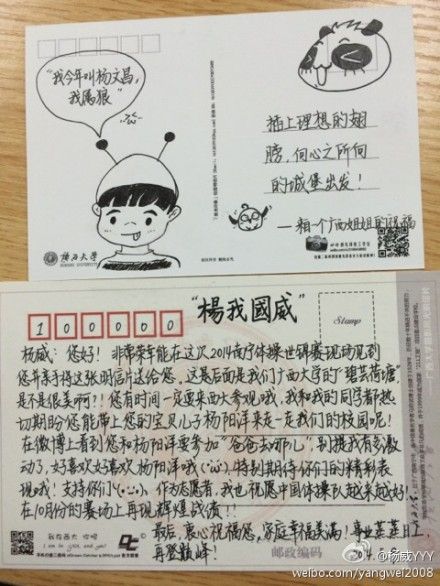 "我今年叫杨文昌，
我属狼"
插上理想的翅
膀，向心之所向
的城堡出发！
——相一个广西姐姐的祝福
广西大学
100000
"楊我國威"
Stamp
杨威：您好！非常荣幸能在这次2014南宁体操世锦赛现场见到
您并亲手将这张明信片送给您，这是后面是我们广西大学的"碧云荷塘"，
是不是很美啊？！您有时间一定要来西大参观哦，我和我的同学都热
切期盼您能带上您的宝贝儿子杨阳洋来走一走我们的校园呢！
在微博上看到您和杨阳洋要参加"爸爸去哪儿"，别提我有多激
动了，好喜欢好喜欢杨阳洋哦，特别期待你们的精彩表
现哦！支持你们，作为志愿者，我也祝愿中国体操队越来越好！
在10月份的赛场上再现辉煌战绩！！
最后，衷心祝福您，家庭幸福美满！事业蒸蒸日上，
再登巅峰！
我在西大 你呢
I am in gxu, and you?
邮政编码
2014.
@杨威YYY
weibo.com/yangwei2008